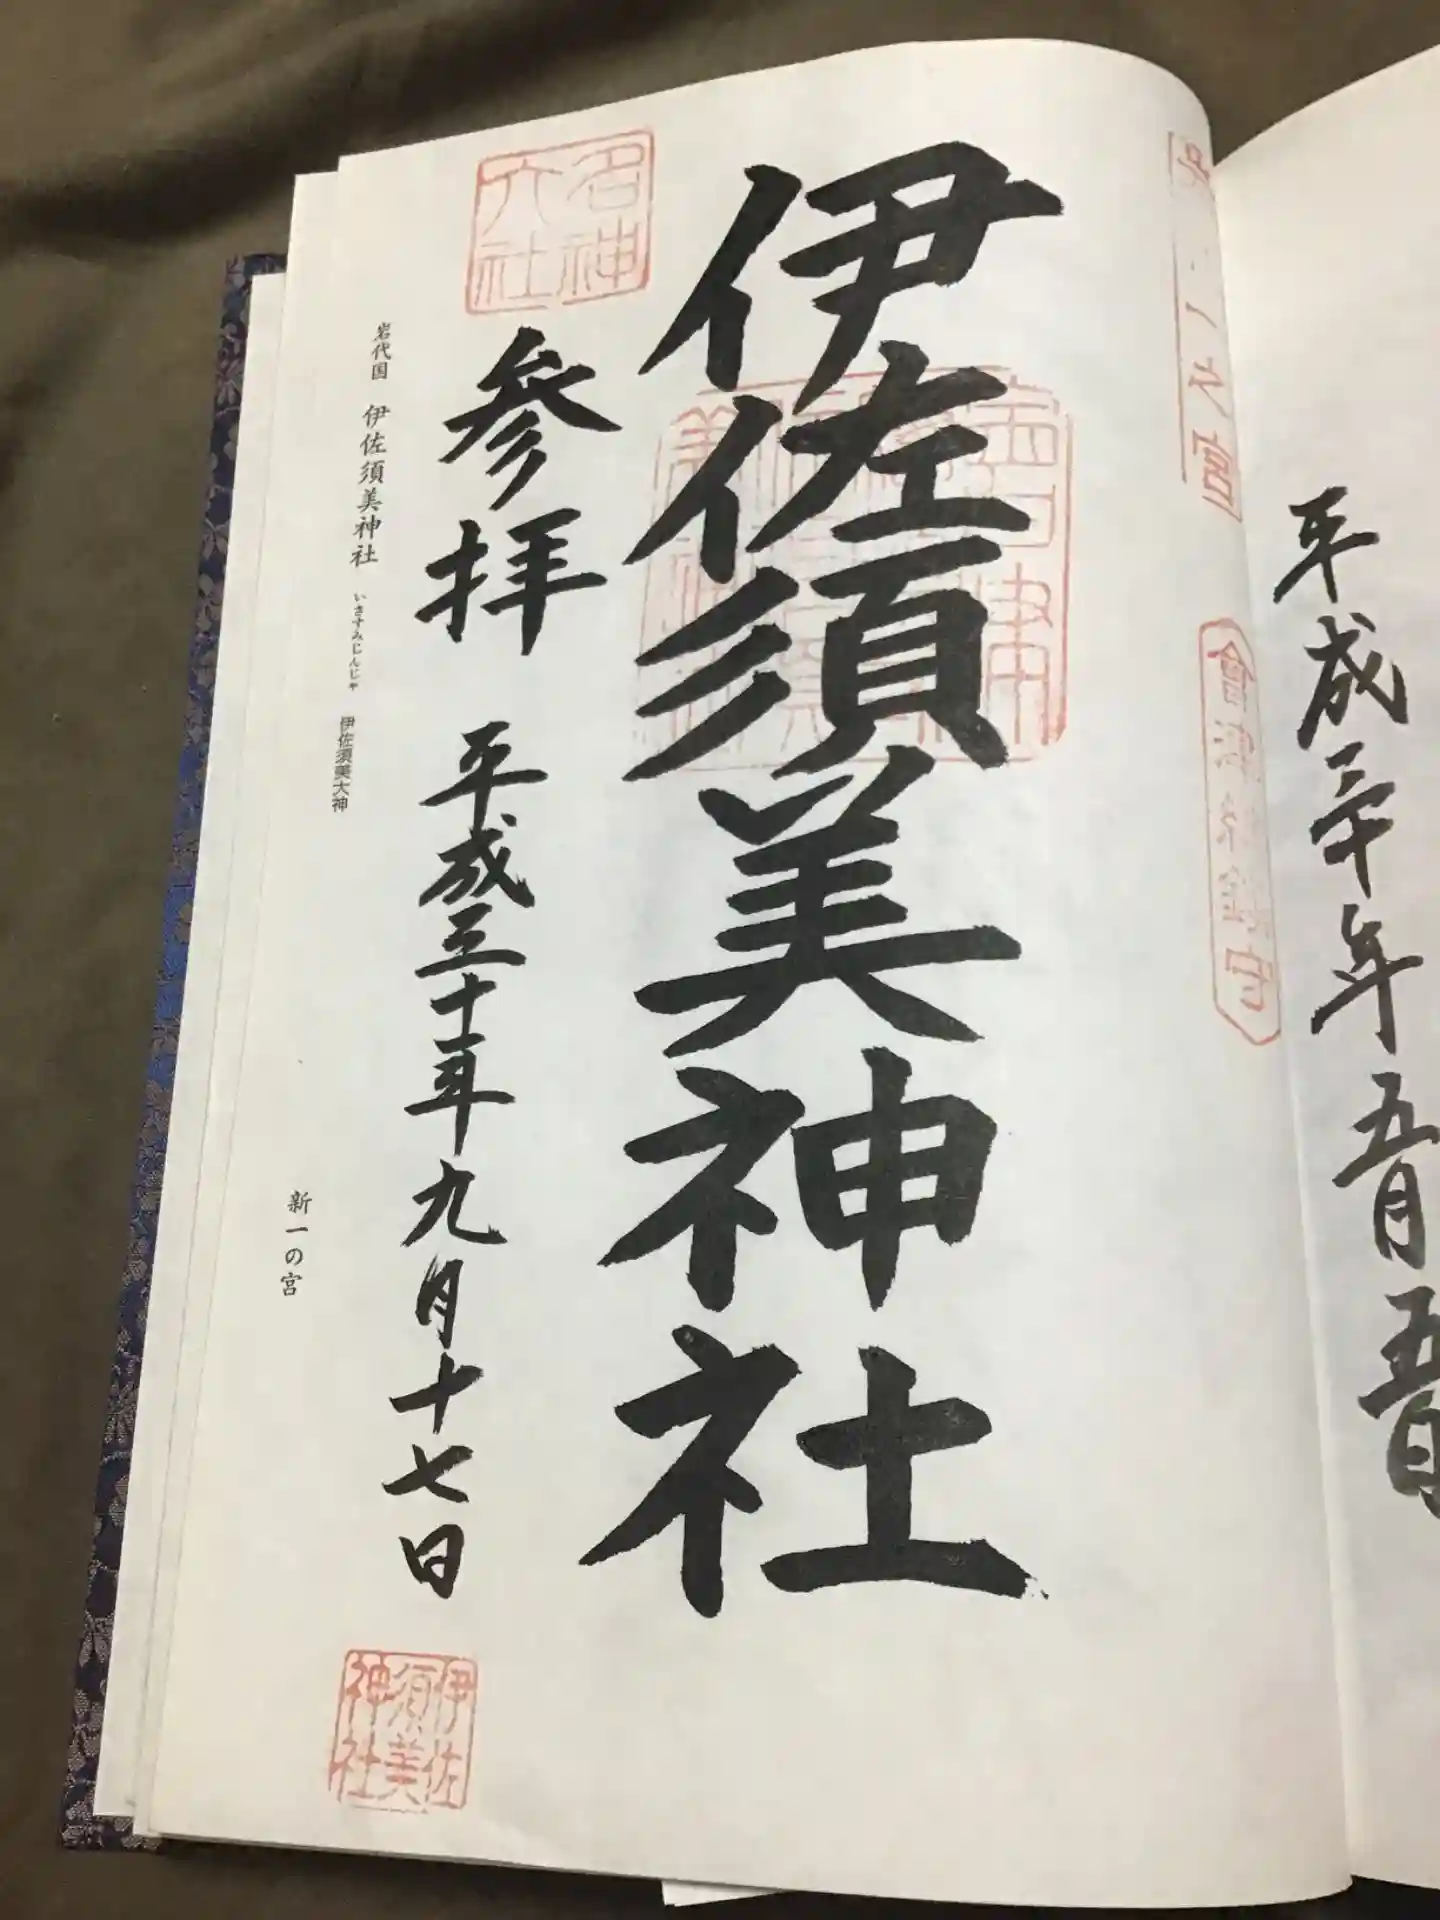 平成三十年五月五日
會津総鎮守
伊佐須美神社
名神
大社
参拝 平成三十年九月十七日
伊佐
須美
神社
岩代国 伊佐須美神社 いさすみじんじゃ 伊佐須美大神
新一の宮